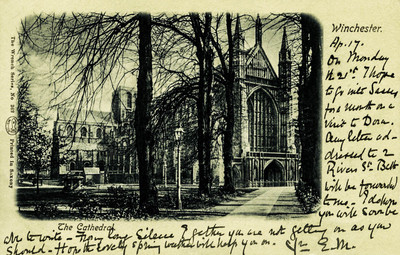 Winchester.
The Wrench Series, No. 107
Printed in Saxony
The Cathedral
Ap. 17.
On Monday
the 21st I hope
to go into Sussex
for a month on a
visit to Dora.
Any letter ad-
dressed to 2
Rivers St. Bath
will be forwarded
to me - I do hope
you will soon be
able to write - From long silence I gather you are not getting on as you
should - Hope the lovely spring weather will help you on. Yr E.M.